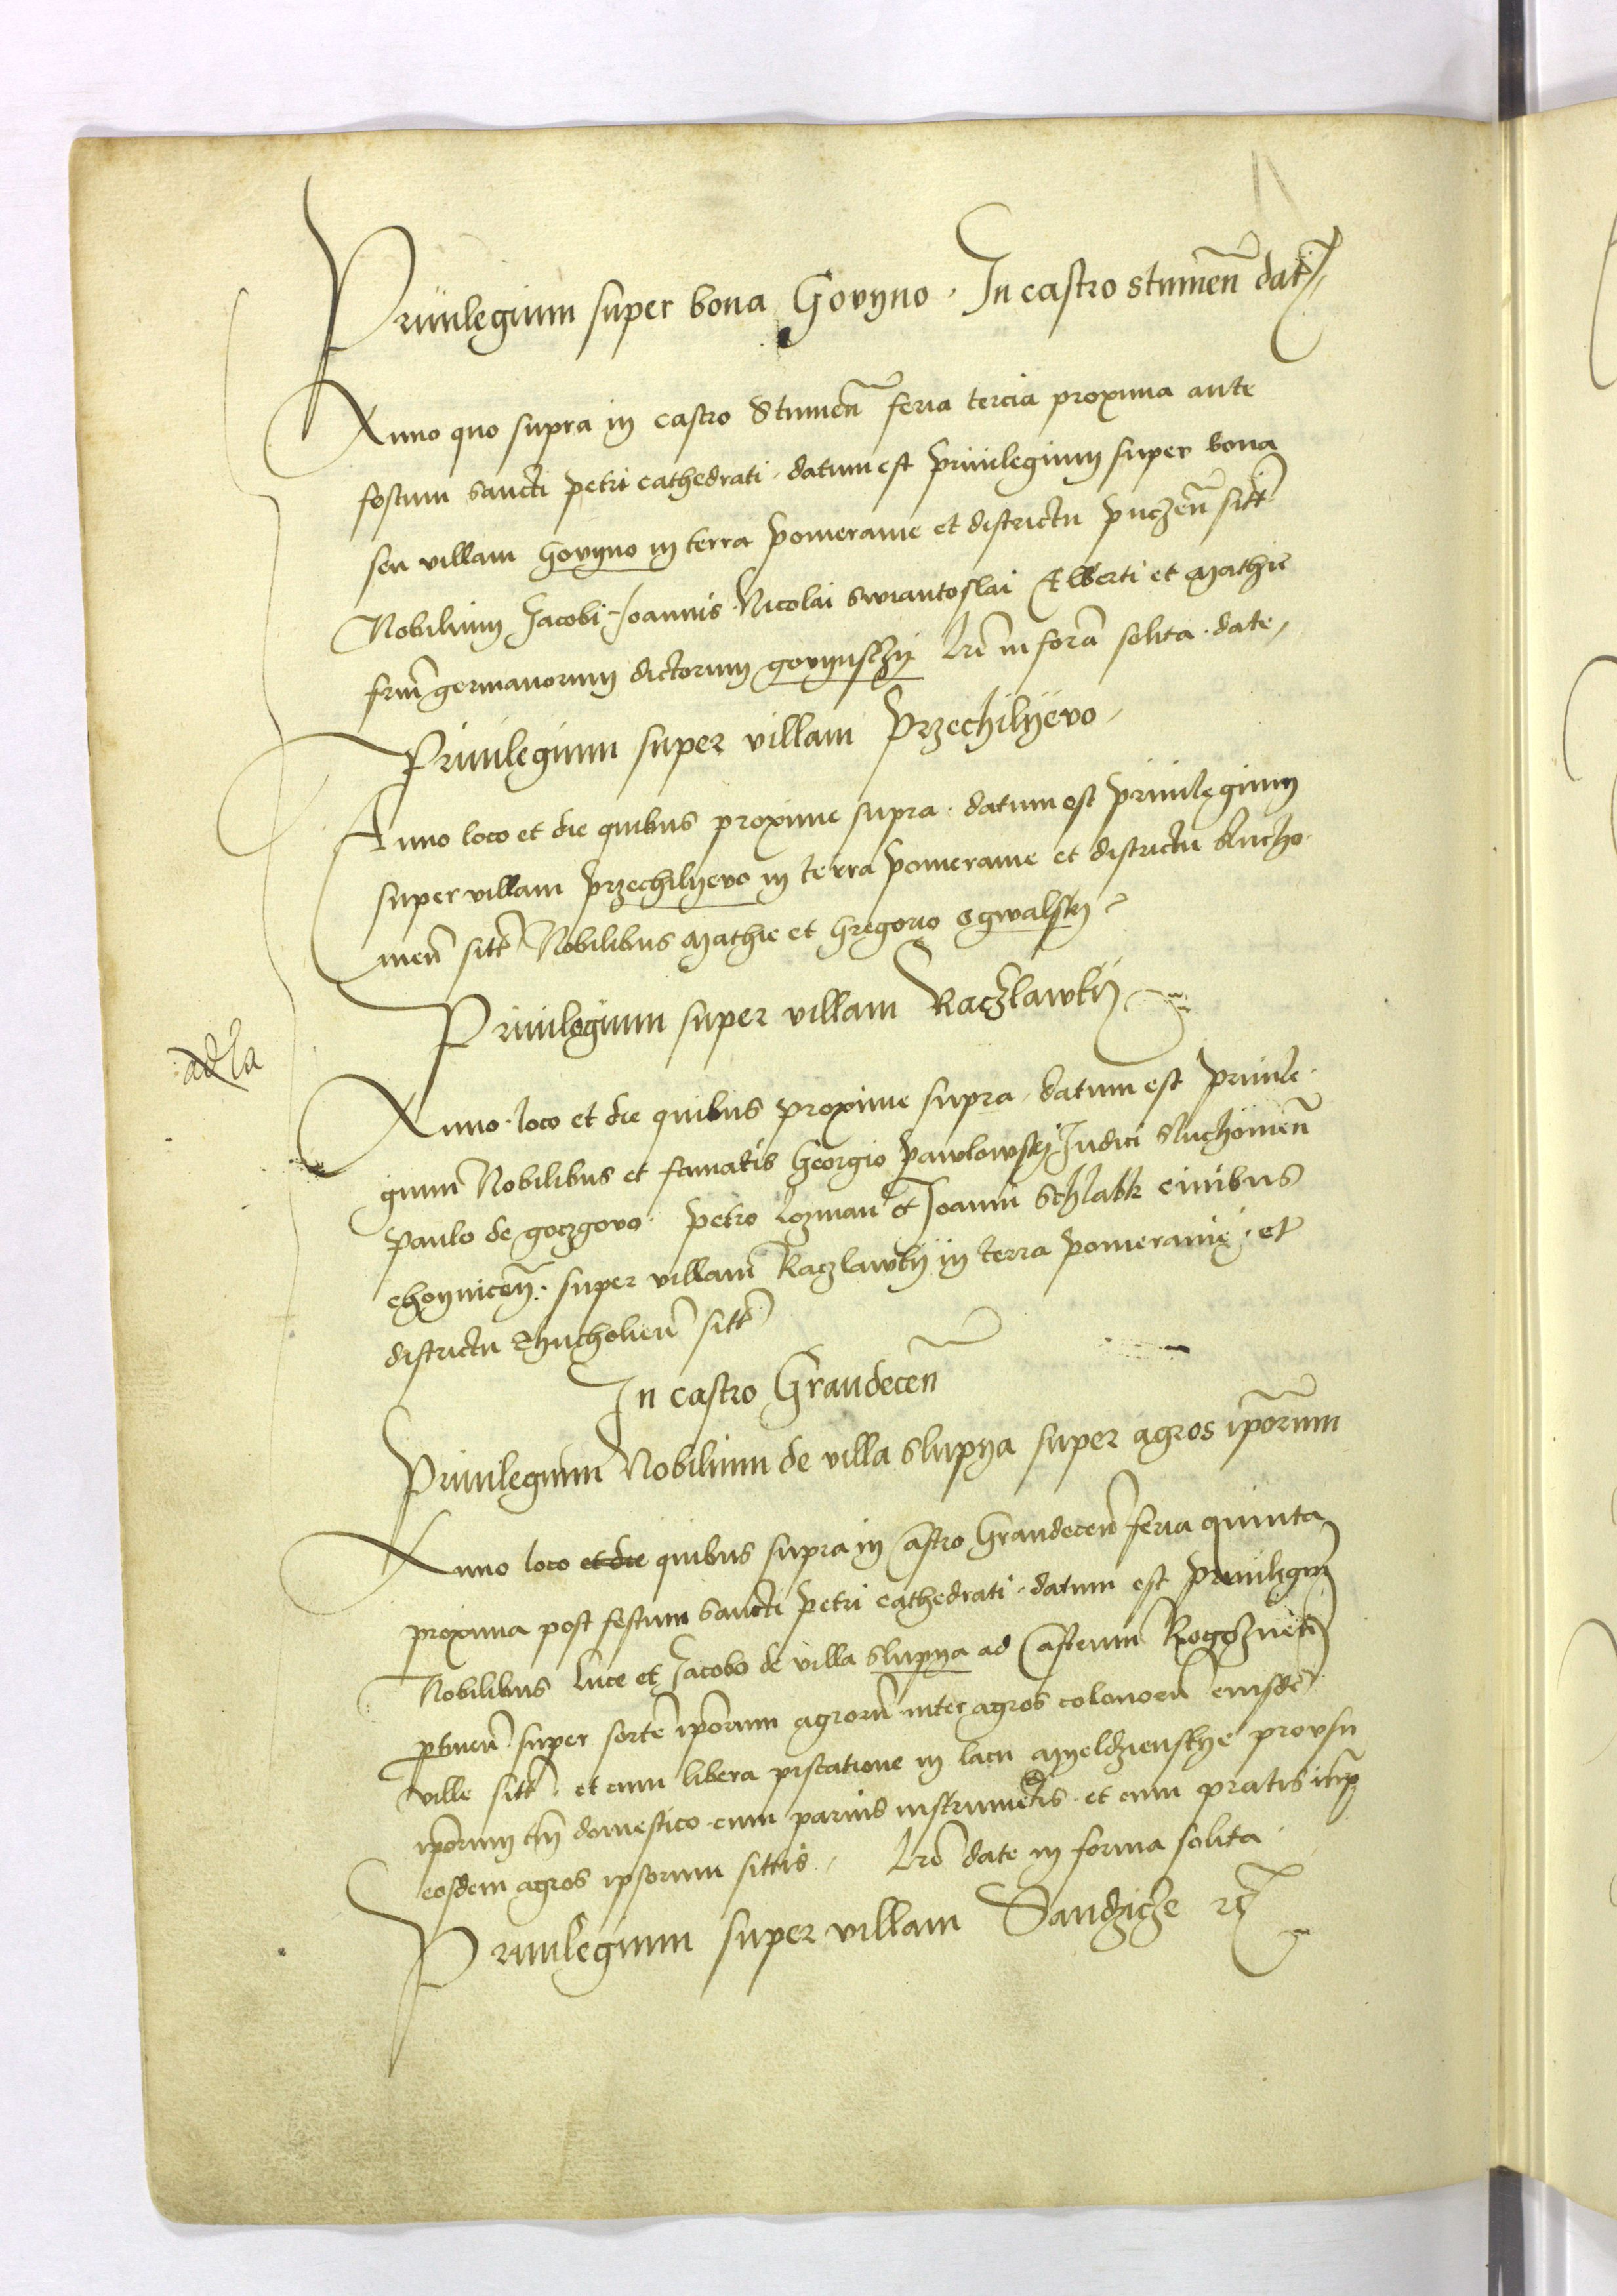 Privilegium super bona Govyno. In castro stumen̄ dat
Anno quo supra in castro Stumen̄ feria tercia proxima ante
festum sancti petri cathedrati. datum est privilegium super bona
seu villam Govyno in terra pomeranie et districtu puczen̄ sitt̄
Nobilium Jacobi Joannis Nicolai Swiantoslai Alberti et Mathie
frm̄ germanorum dictorum govynsczy Lrē in formā solita. date
Privilegium super villam Przechilyevo
Anno loco et die quibus proxime supra. datum est privilegium
super villam przechilyevo in terra pomeranie et districtu slucho
men̄ sitt̄ Nobilibus Mathie et Gregorio ogwalsky
Privilegium super villam Raczlawky
ad la
Anno. loco et die quibus proxime supra, datum est privile
gium Nobilibus et famatis Georgio pawlowsky Judici sluchomen̄
paulo de goczgovo. petro lozman et Joanni Schlabk civibus
choynicen̄. super villam Raczlawky in terra pomeranie. et
districtu Thucholien̄ sitt̄
In castro Graudecen̄
Privilegium Nobilium de villa slupya super agros ipōrum
Anno loco et die quibus supra in Castro Graudecen̄ feria quinta
proxima post festum sancti petri cathedrati. datum est privilegiū
Nobilibus Luce et Jacobo de villa slupya ad Castrum Rogoznen̄
ptinen̄ super sortē ipōrum agrorū inter agros colonorū eiusdē
ville sitt̄. et cum libera piscatione in lacu Myeldzienskye pro usu
ipōrum tm̄ domestico cum parvis instrumētis. et cum pratis inṭ
eosdem agros ipsorum sittis. Lrē date in forma solita
Privilegium super villam Sandzicze rc̄